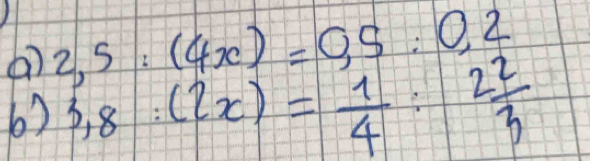 a) 2,5 : (4x) = 0,5 : 0,2
b) 3,8 : (2x) = 1/4 : 2 2/3